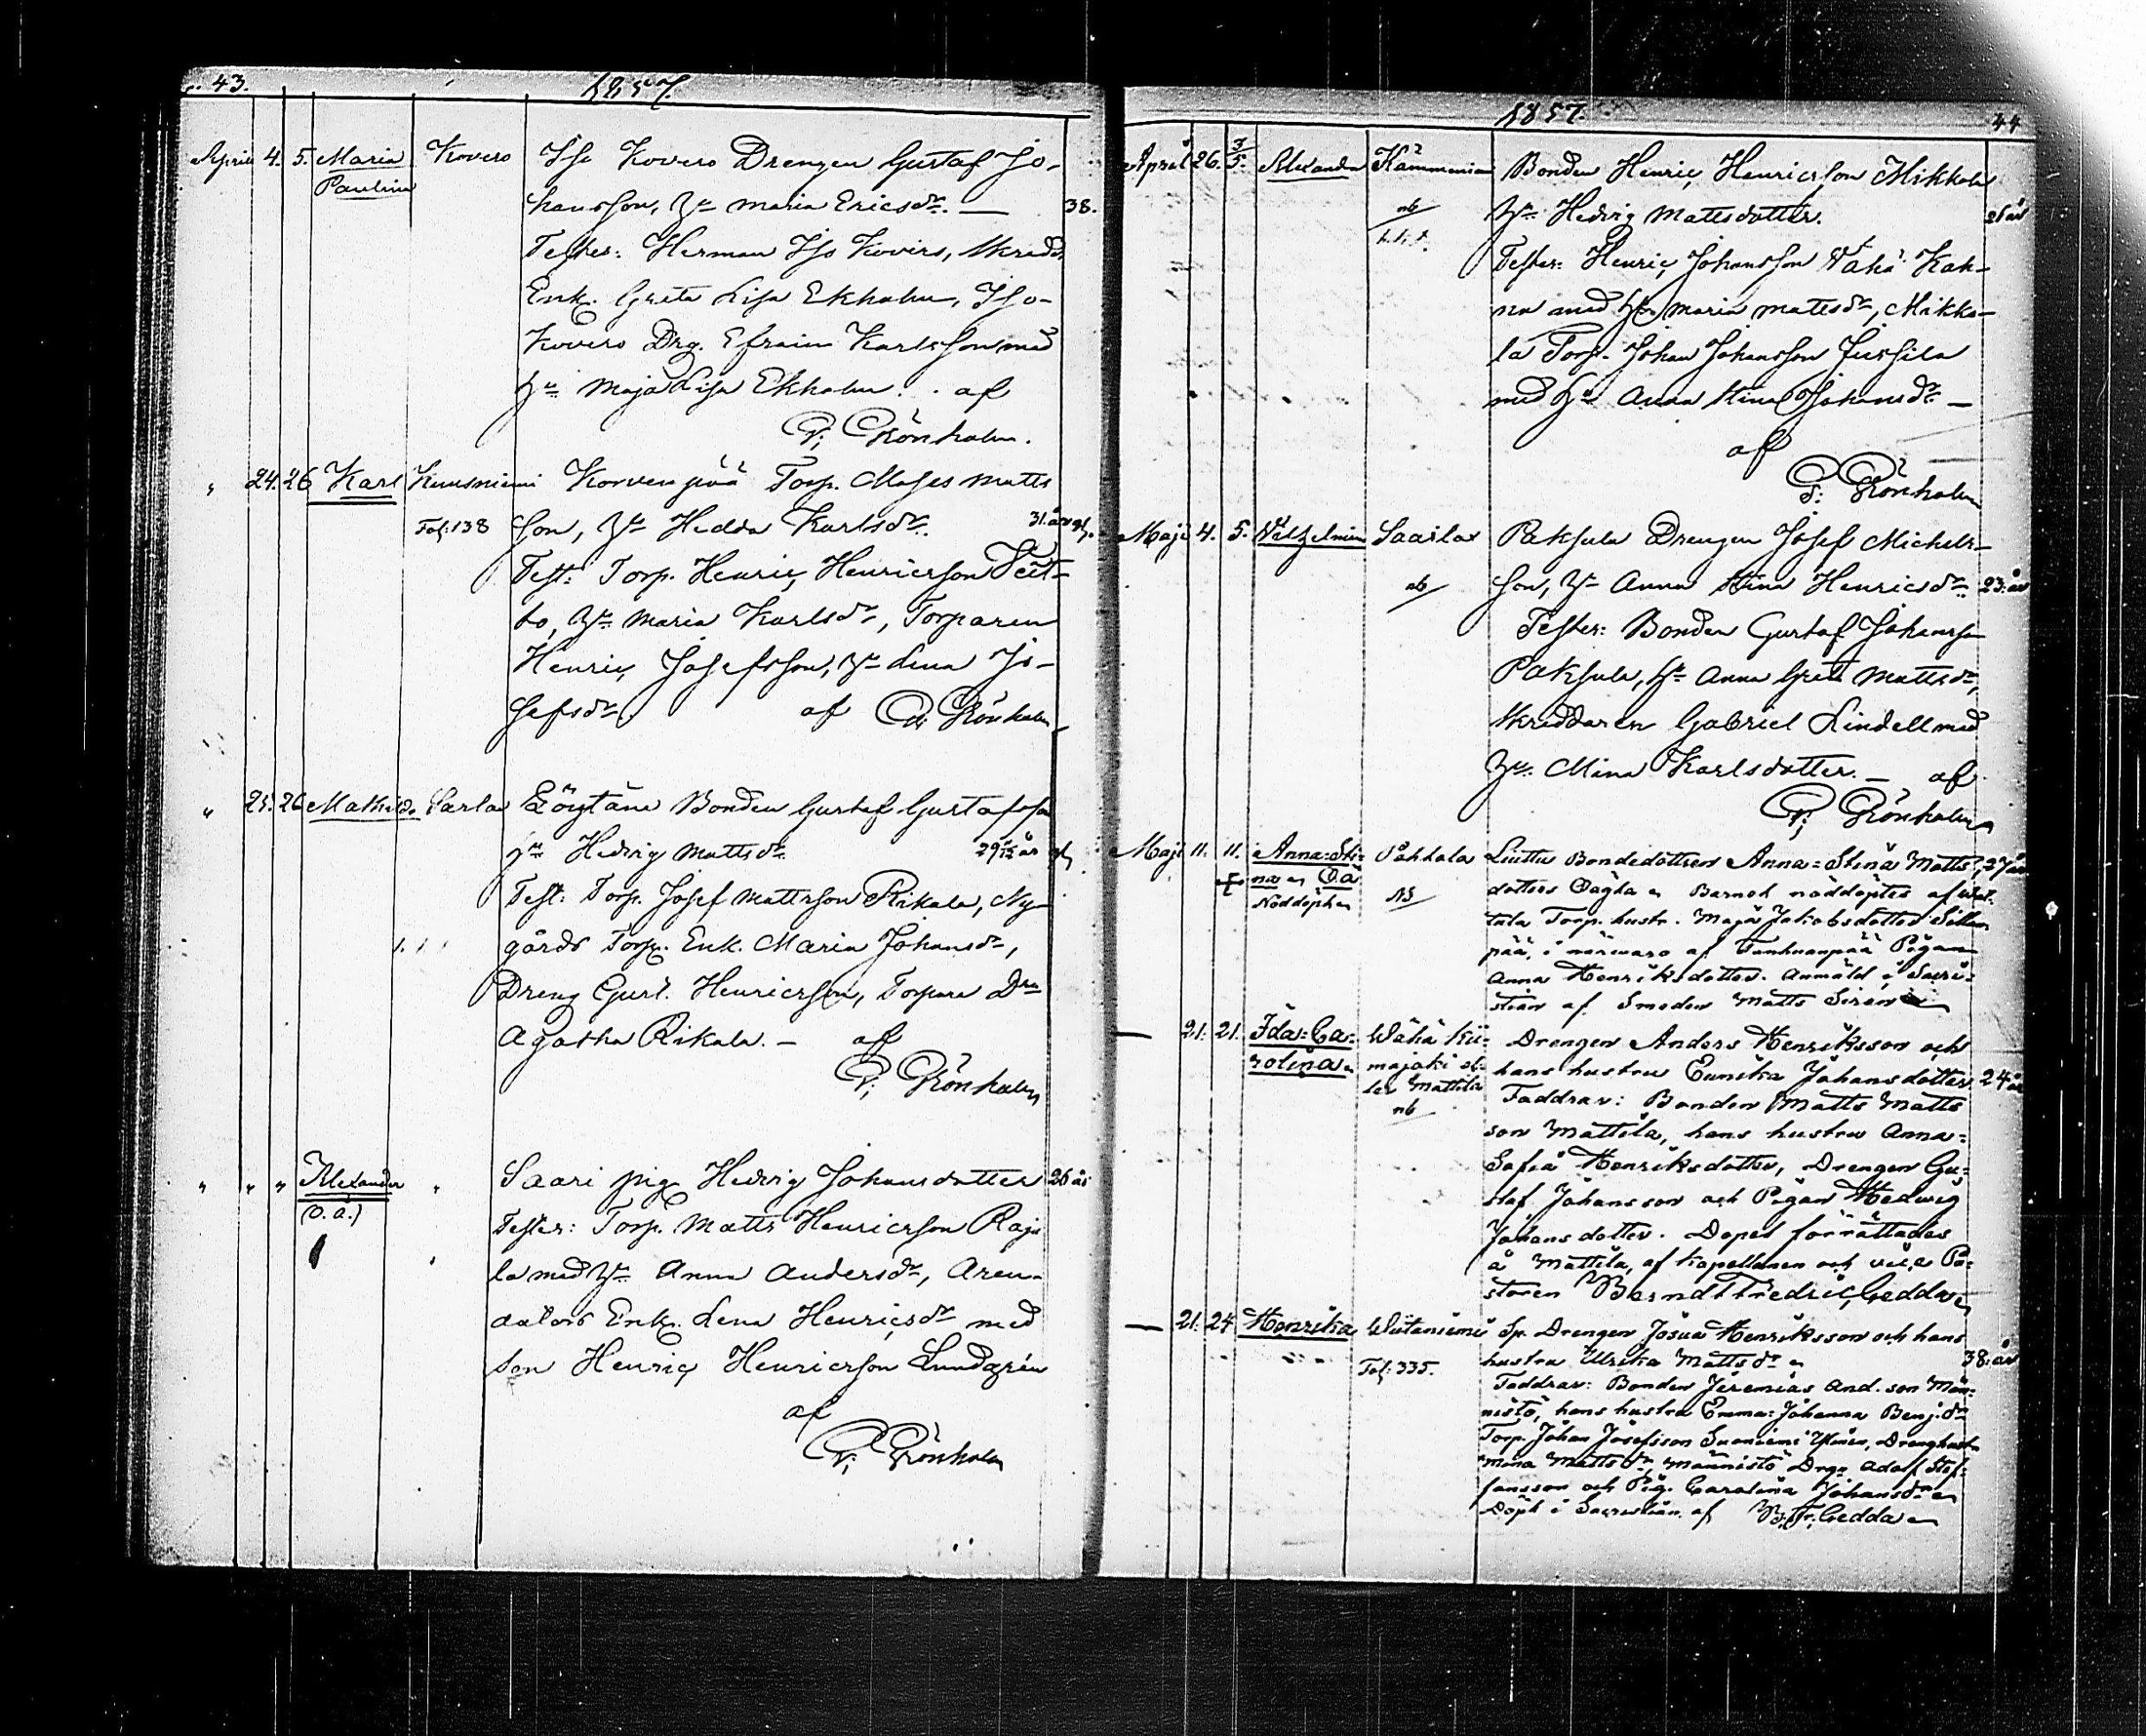 43.
1857.
April 4. 5. Maria Kovero Iso Kovero Drengen Gustaf Jo-
Paulina hansson, Hu Maria Ericsdr. — 38.
Testes: Herman Iso Kovero, Skredd.
Enk. Greta Lisa Ekholm, Iso-
Kovero Drg. Efraim Karlsson med
Hu Maja Lisa Ekholm. af
P; Grönholm.
" 24. 26 Karl Kuusniemi Korvenpää Torp. Moses Matts
Fol: 138 son, Hu Hedda Karlsdr. 31. år gl.
Test: Torp. Henric Henricsson
Hu Maria Karlsdr, Torparen
Henric Josefsson, Hu Lena Jo-
sefsdr. af P; Grönholm
" 25. 26 Mathilda Sarla Bonden Gustaf Gustafsson
Hu Hedvig Mattsdr. 29 år gl
Test: Torp. Josef Mattsson Rikala, Ny-
gårds Torp. Enk. Maria Johansdr,
Dreng Gust. Henricsson, Torpare Drn
Agatha Rikala. — af
P; Grönholm
" " " Alexander " Saari pig. Hedvig Johansdotter 26 år
(O. Ä.)
Testes: Torp. Matts Henricsson Raju
la med Hu Anna Andersdr, Aren-
dators Enk. Lena Henricsdr med
son Henric Henricsson Lundgrén
af
P; Grönholm
1857.
44
April 26. 3/5. Alexander Kämmenniemi Bonden Henric Henricsson Mikkola
nb Hu Hedvig Mattsdotter. 26 år
Testes: Henric Johansson Vähä Kah-
ra med Hu Maria Mattsdr, Mikko-
la Torp. Johan Johansson Jussila
med Hu Anna Stina Johansdr —
af
P: Grönholm
Maji 4. 5. Vilhelmina Saarlax Paksula Drengen Josef Michels-
nb son, Hu Anna Stina Henricsdr. 23. år
Testes: Bonden Gustaf Johansson
Paksula, Hu Anna Greta Mattsdr,
Skreddaren Gabriel Lindell med
Hu Mina Karlsdotter. — af
P; Grönholm
Maji 11. 11. Anna-Sti- Pahkala Liuttu Bondedottren Anna-Stina Matts- 27 år
na OÄ dotters Oägta Barnet nöddöptes af
Nöddöpt NB Torp. hustr. Maja Jakobsdotter
pää, i närvaro af Tanhuanpää Pigan
Anna Henriksdotter. Anmäld i Sacri-
stian af Smeden Matts Sirén
— 21. 21. Ida-Ca- Wähä Kii- Drengen Anders Henriksson och
rolina majoki el- hans hustru Eunika Johansdotter 24 år
ler Mattila Faddrar: Bonden Matts Matts
nb son Mattila, hans hustru Anna-
Sofia Henriksdotter, Drengen Gu-
staf Johansson och Pigan Hedwig
Johansdotter. Dopet förrättades
å Mattila, af Kapellanen och vice Pa-
storen Berndt Fredric Gedda
— 21. 24 Henrika Wiitaniemi Sp. Drengen Josua Henriksson och hans
Fol: 335. hustru Ulrika Mattsdr 38. år
Faddrar: Bonden Jeremias And. son Män-
nistö, hans hustru Emma-Johanna Benj. dr
Torp. Johan Josefsson Suoniemi Ylinen, Dreng hustr.
Mina Mattsdr, Männistö Drgn Adolf Stef-
fansson och Pig. Carolina Johansdr
Döpt i Sacristian af B. Fr. Gedda